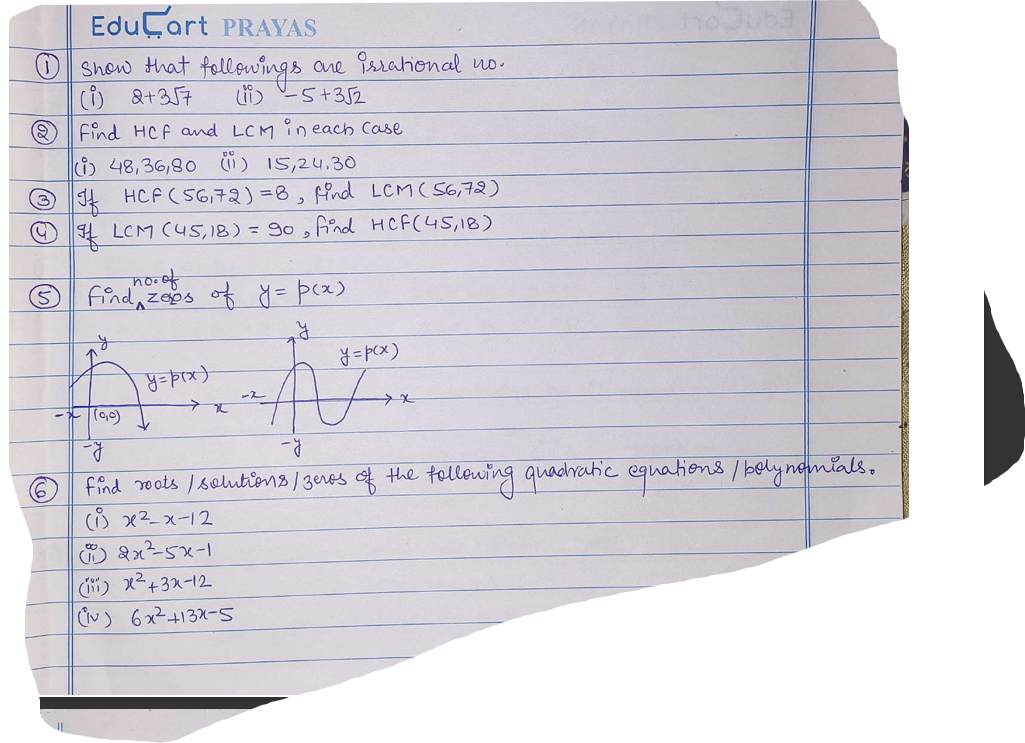 EduCart PRAYAS
① Show that followings are irrational no.
(i) 2+3√7 (ii) -5+3√2
② Find HCF and LCM in each case
(i) 48,36,80 (ii) 15,24,30
③ If HCF(56,72)=8, find LCM(56,72)
④ If LCM(45,18) = 90, find HCF(45,18)
no. of
⑤ Find ^ zeros of y = p(x)
y y
y=p(x) y=p(x)
-x (0,0) x -x x
-y -y
⑥ Find roots / solutions / zeros of the following quadratic equations / polynomials.
(i) x²-x-12
(ii) 2x²-5x-1
(iii) x²+3x-12
(iv) 6x²+13x-5